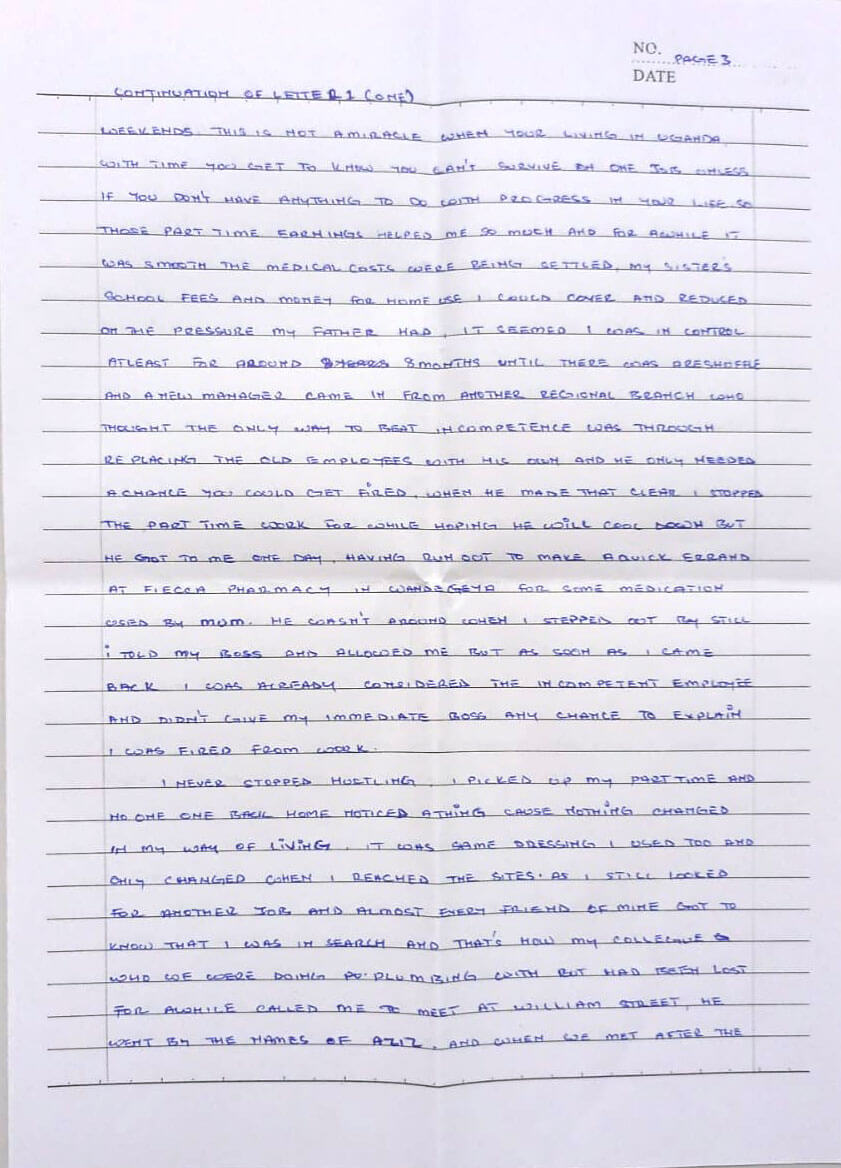 NO. PAGE 3
DATE
CONTINUATION OF LETTER 1 (ONE)
WEEKENDS. THIS IS NOT A MIRACLE WHEN YOUR LIVING IN UGANDA
WITH TIME YOU GET TO KNOW YOU CAN'T SURVIVE ON ONE JOB UNLESS
IF YOU DON'T HAVE ANYTHING TO DO WITH PROGRESS IN YOUR LIFE. SO
THOSE PART TIME EARNINGS HELPED ME SO MUCH AND FOR AWHILE IT
WAS SMOOTH THE MEDICAL COSTS WERE BEING SETTLED, MY SISTER'S
SCHOOL FEES AND MONEY FOR HOME USE I COULD COVER AND REDUCED
ON THE PRESSURE MY FATHER HAD, IT SEEMED I WAS IN CONTROL
ATLEAST FOR AROUND 8 YEARS 8 MONTHS UNTIL THERE WAS A RESHUFFLE
AND A NEW MANAGER CAME IN FROM ANOTHER REGIONAL BRANCH WHO
THOUGHT THE ONLY WAY TO BEAT INCOMPETENCE WAS THROUGH
REPLACING THE OLD EMPLOYEES WITH HIS OWN AND HE ONLY NEEDED
A CHANCE YOU COULD GET FIRED. WHEN HE MADE THAT CLEAR I STOPPED
THE PART TIME WORK FOR WHILE HOPING HE WILL COOL DOWN BUT
HE GOT TO ME ONE DAY, HAVING RUN OUT TO MAKE A QUICK ERRAND
AT FIECCA PHARMACY IN WANDEGEYA FOR SOME MEDICATION
USED BY MUM. HE WASN'T AROUND WHEN I STEPPED OUT BY STILL
I TOLD MY BOSS AND ALLOWED ME BUT AS SOON AS I CAME
BACK I WAS ALREADY CONSIDERED THE INCOMPETENT EMPLOYEE
AND DIDN'T GIVE MY IMMEDIATE BOSS ANY CHANCE TO EXPLAIN
I WAS FIRED FROM WORK.
I NEVER STOPPED HUSTLING, I PICKED UP MY PART TIME AND
NO ONE ONE BACK HOME NOTICED A THING CAUSE NOTHING CHANGED
IN MY WAY OF LIVING. IT WAS SAME DRESSING I USED TOO AND
ONLY CHANGED WHEN I REACHED THE SITES. AS I STILL LOOKED
FOR ANOTHER JOB AND ALMOST EVERY FRIEND OF MINE GOT TO
KNOW THAT I WAS IN SEARCH AND THAT'S HOW MY COLLEGUE
WHO WE WERE DOING PLUMBING WITH BUT HAD BEEN LOST
FOR AWHILE CALLED ME TO MEET AT WILLIAM STREET, HE
WENT BY THE NAMES OF AZIZ. AND WHEN WE MET AFTER THE